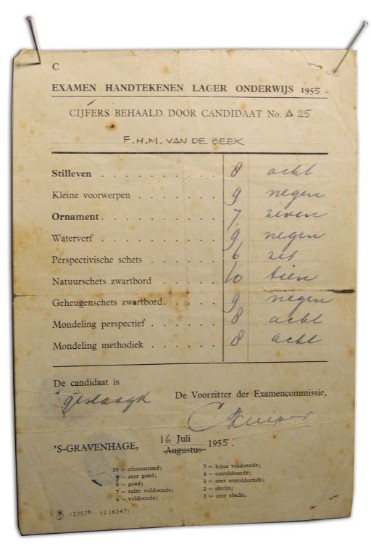 C
EXAMEN HANDTEKENEN LAGER ONDERWIJS 1955.
CIJFERS BEHAALD DOOR CANDIDAAT No. A 25
F.H.M. VAN DE BEEK
Stilleven 8 acht
Kleine voorwerpen 9 negen
Ornament 7 zeven
Waterverf 9 negen
Perspectivische schets 6 zes
Natuurschets zwartbord 10 tien
Geheugenschets zwartbord 9 negen
Mondeling perspectief 8 acht
Mondeling methodiek 8 acht
De candidaat is De Voorzitter der Examencommissie,
geslaagd
16 Juli
'S-GRAVENHAGE, Augustus 1955.
10 = uitmuntend; 5 = bijna voldoende;
9 = zeer goed; 4 = onvoldoende;
8 = goed; 3 = zeer onvoldoende;
7 = ruim voldoende; 2 = slecht;
6 = voldoende; 1 = zeer slecht.